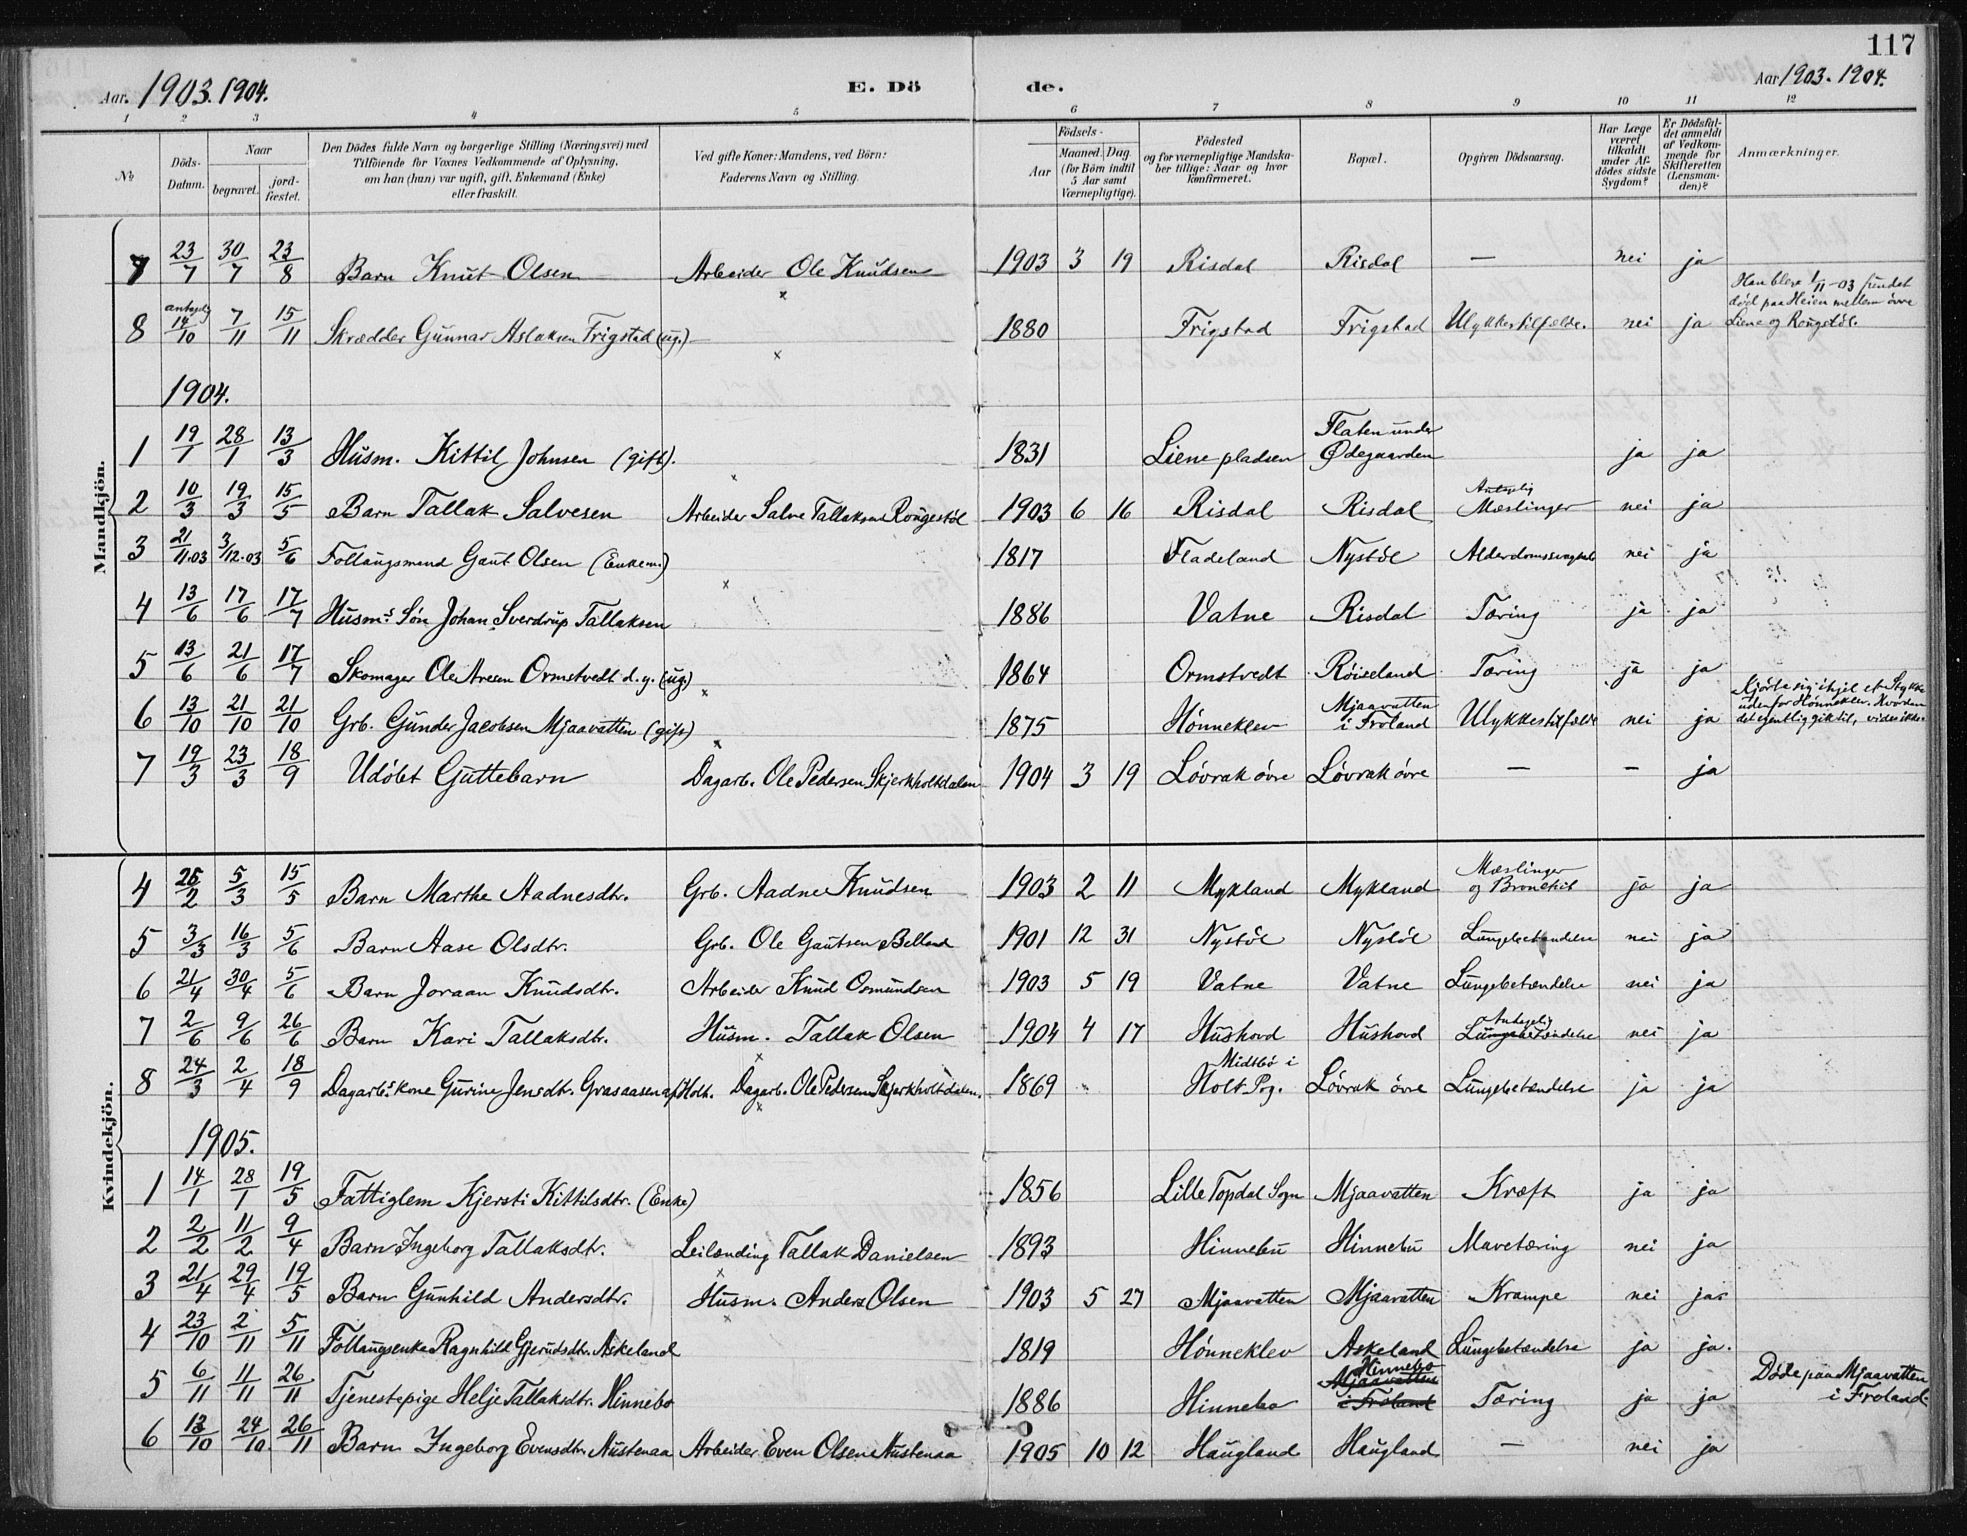 117
Aar. 1903. 1904. E. Dö de. Aar 1903. 1904.
1 2 3 4 5 6 7 8 9 10 11 12
No. Döds-Datum. Naar begravet. jordfæstet. Den Dödes fulde Navn og borgerlige Stilling (Næringsvei) med Tilföiende for Voxnes Vedkommende af Oplysning, om han (hun) var ugift, gift, Enkemand (Enke) eller fraskilt. Ved gifte Koner: Mandens, ved Börn: Faderens Navn og Stilling. Födsels- Aar Maaned. Dag. (for Börn indtil 5 Aar samt Værnepligtige). Födested og for værnepligtige Mandskaber tillige: Naar og hvor konfirmeret. Bopæl. Opgiven Dödsaarsag. Har Læge været tilkaldt under Afdödes sidste Sygdom? Er Dödsfaldet anmeldt af Vedkommende for Skifteretten (Lensmanden)? Anmærkninger.
Mandkjön.
7 23/7 30/7 23/8 Barn Knut Olsen Arbeider Ole Knudsen 1903 3 19 Risdal Risdal — nei ja
8 antagelig 14/10 7/11 15/11 Skrædder Gunnar Aslaksen Frigstad (ug.) 1880 Frigstad Frigstad Ulykkestilfælde. nei ja Han blev 1/11-03 fundet død paa Heien mellem øvre Liene og Rougstøl.
1904.
1 19/1 28/1 13/3 Husm. Kittil Johnsen (gift). 1831 Liene pladsen Flaten under Ødegaarden ja ja
2 10/3 19/3 15/5 Barn Tallak Salvesen Arbeider Salve Tallaksen Rougestøl 1903 6 16 Risdal Risdal Antagelig Mæslinger nei ja
3 21/11.03 3/12.03 5/6 Follaugsmand Gaut Olsen (Enkem.) 1817 Fladeland Nystøl Alderdomssvaghed nei ja
4 13/6 17/6 17/7 Husm.s Søn Johan Sverdrup Tallaksen 1886 Vatne Risdal Tæring ja ja
5 13/6 21/6 17/7 Skomager Ole Aresen Ormstvedt d. y. (ug.) 1864 Ormstvedt Røiseland Tæring ja ja
6 13/10 21/10 21/10 Grb. Gunder Jacobsen Mjaavatten (gift) 1875 Hønneklev Mjaavatten i Froland Ulykkestilfælde nei ja Kjørte sig ihjel et Stykke udenfor Hønneklev. Hvordan det egentlig gik til, vides ikke.
7 19/3 23/3 18/9 Udøbt Guttebarn Dagarb. Ole Pedersen Skjerkholtdalen 1904 3 19 Løvrak øvre Løvrak øvre — — ja
Kvindekjön.
4 25/2 5/3 15/5 Barn Marthe Aadnesdtr. Grb. Aadne Knudsen 1903 2 11 Mykland Mykland Mæslinger og Bronchit ja ja
5 3/3 16/3 5/6 Barn Aase Olsdtr. Grb. Ole Gautsen Belland 1901 12 31 Nystøl Nystøl Lungebetændelse nei ja
6 21/4 30/4 5/6 Barn Joraan Knudsdtr. Arbeider Knud Osmundsen 1903 5 19 Vatne Vatne Lungebetændelse nei ja
7 2/6 9/6 26/6 Barn Kari Tallaksdtr. Husm. Tallak Olsen 1904 4 17 Hushovd Hushovd Antagelig Lungebetændelse nei ja
8 24/3 2/4 18/9 Dagarb.s kone Gurine Jensdtr. Grasaasen af Holt. Dagarb. Ole Pedersen Skjerkholtdalen. 1869 Midtbø i Holt Pg. Løvrak øvre Lungebetændelse ja ja
1905.
1 14/1 28/1 19/5 Fattiglem Kjersti Kittilsdtr. (Enke) 1856 Lille Topdal Sogn Mjaavatten Kræft ja ja
2 2/2 11/2 9/4 Barn Ingeborg Tallaksdtr. Leilænding Tallak Danielsen 1893 Hinnebu Hinnebu Mavetæring nei ja
3 21/4 29/4 19/5 Barn Gunhild Andersdtr. Husm. Anders Olsen 1903 5 27 Mjaavatten Mjaavatten Krampe nei ja
4 23/10 2/11 5/11 Follaugsenke Ragnhild Gjerudsdtr. Askeland 1819 Hønneklev Askeland Lungebetændelse ja ja.
5 6/11 11/11 26/11 Tjenestepige Helje Tallaksdtr. Hinnebo 1886 Hinnebo Hinnebo Mjaavatten i Froland Tæring ja ja Døde paa Mjaavatten i Froland.
6 13/10 24/10 26/11 Barn Ingeborg Evensdtr. Austenaa Arbeider Even Olsen Austenaa 1905 10 12 Haugland Haugland — nei ja